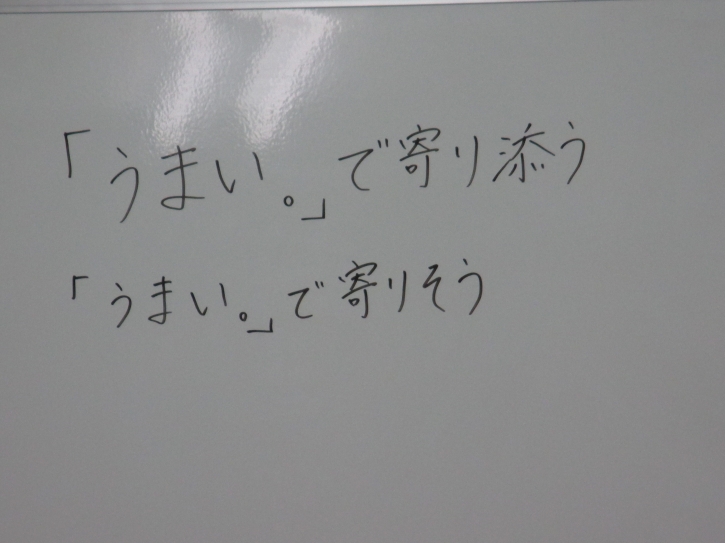 「うまい。」で寄り添う
「うまい。」で寄りそう